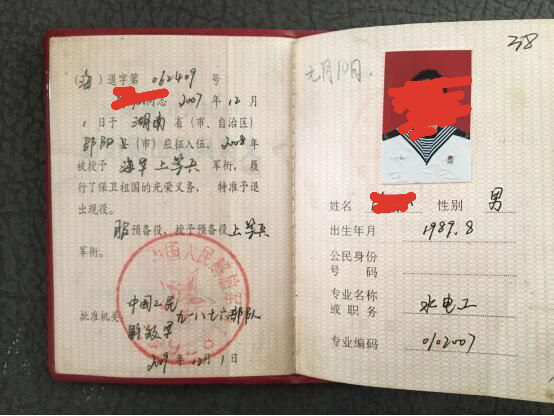 (海)退字第 062409 号
同志 2007 年 12 月
1 日于 湖南 省(市、自治区)
邵阳 县(市)应征入伍, 2008 年
被授予 海军上等兵 军衔,履
行了保卫祖国的光荣义务,特准予退
出现役。
服预备役,授予预备役 上等兵
军衔。
批准机关 中国人民
解放军 九一八七六部队
2009 年 12 月 1 日
中国人民解放军
238
元月10日.
姓名 性别 男
出生年月 1989.8
公民身份
号码
专业名称
或职务 水电工
专业编码 0102007